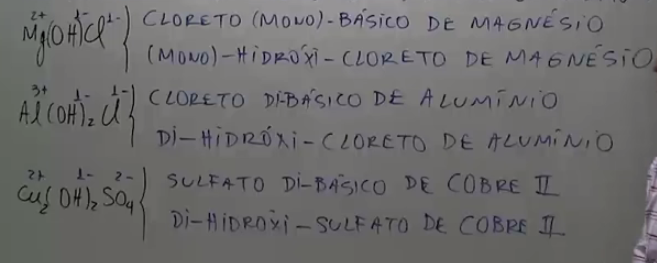 2+ 1- 1-
Mg(OH)Cl } CLORETO (MONO)-BÁSICO DE MAGNÉSIO
(MONO)-HIDRÓXI-CLORETO DE MAGNÉSIO
3+ 1- 1-
Al(OH)₂Cl } CLORETO DI-BÁSICO DE ALUMÍNIO
DI-HIDRÓXI-CLORETO DE ALUMÍNIO
2+ 1- 2-
Cu₂(OH)₂SO₄ { SULFATO DI-BÁSICO DE COBRE II
DI-HIDRÓXI-SULFATO DE COBRE II